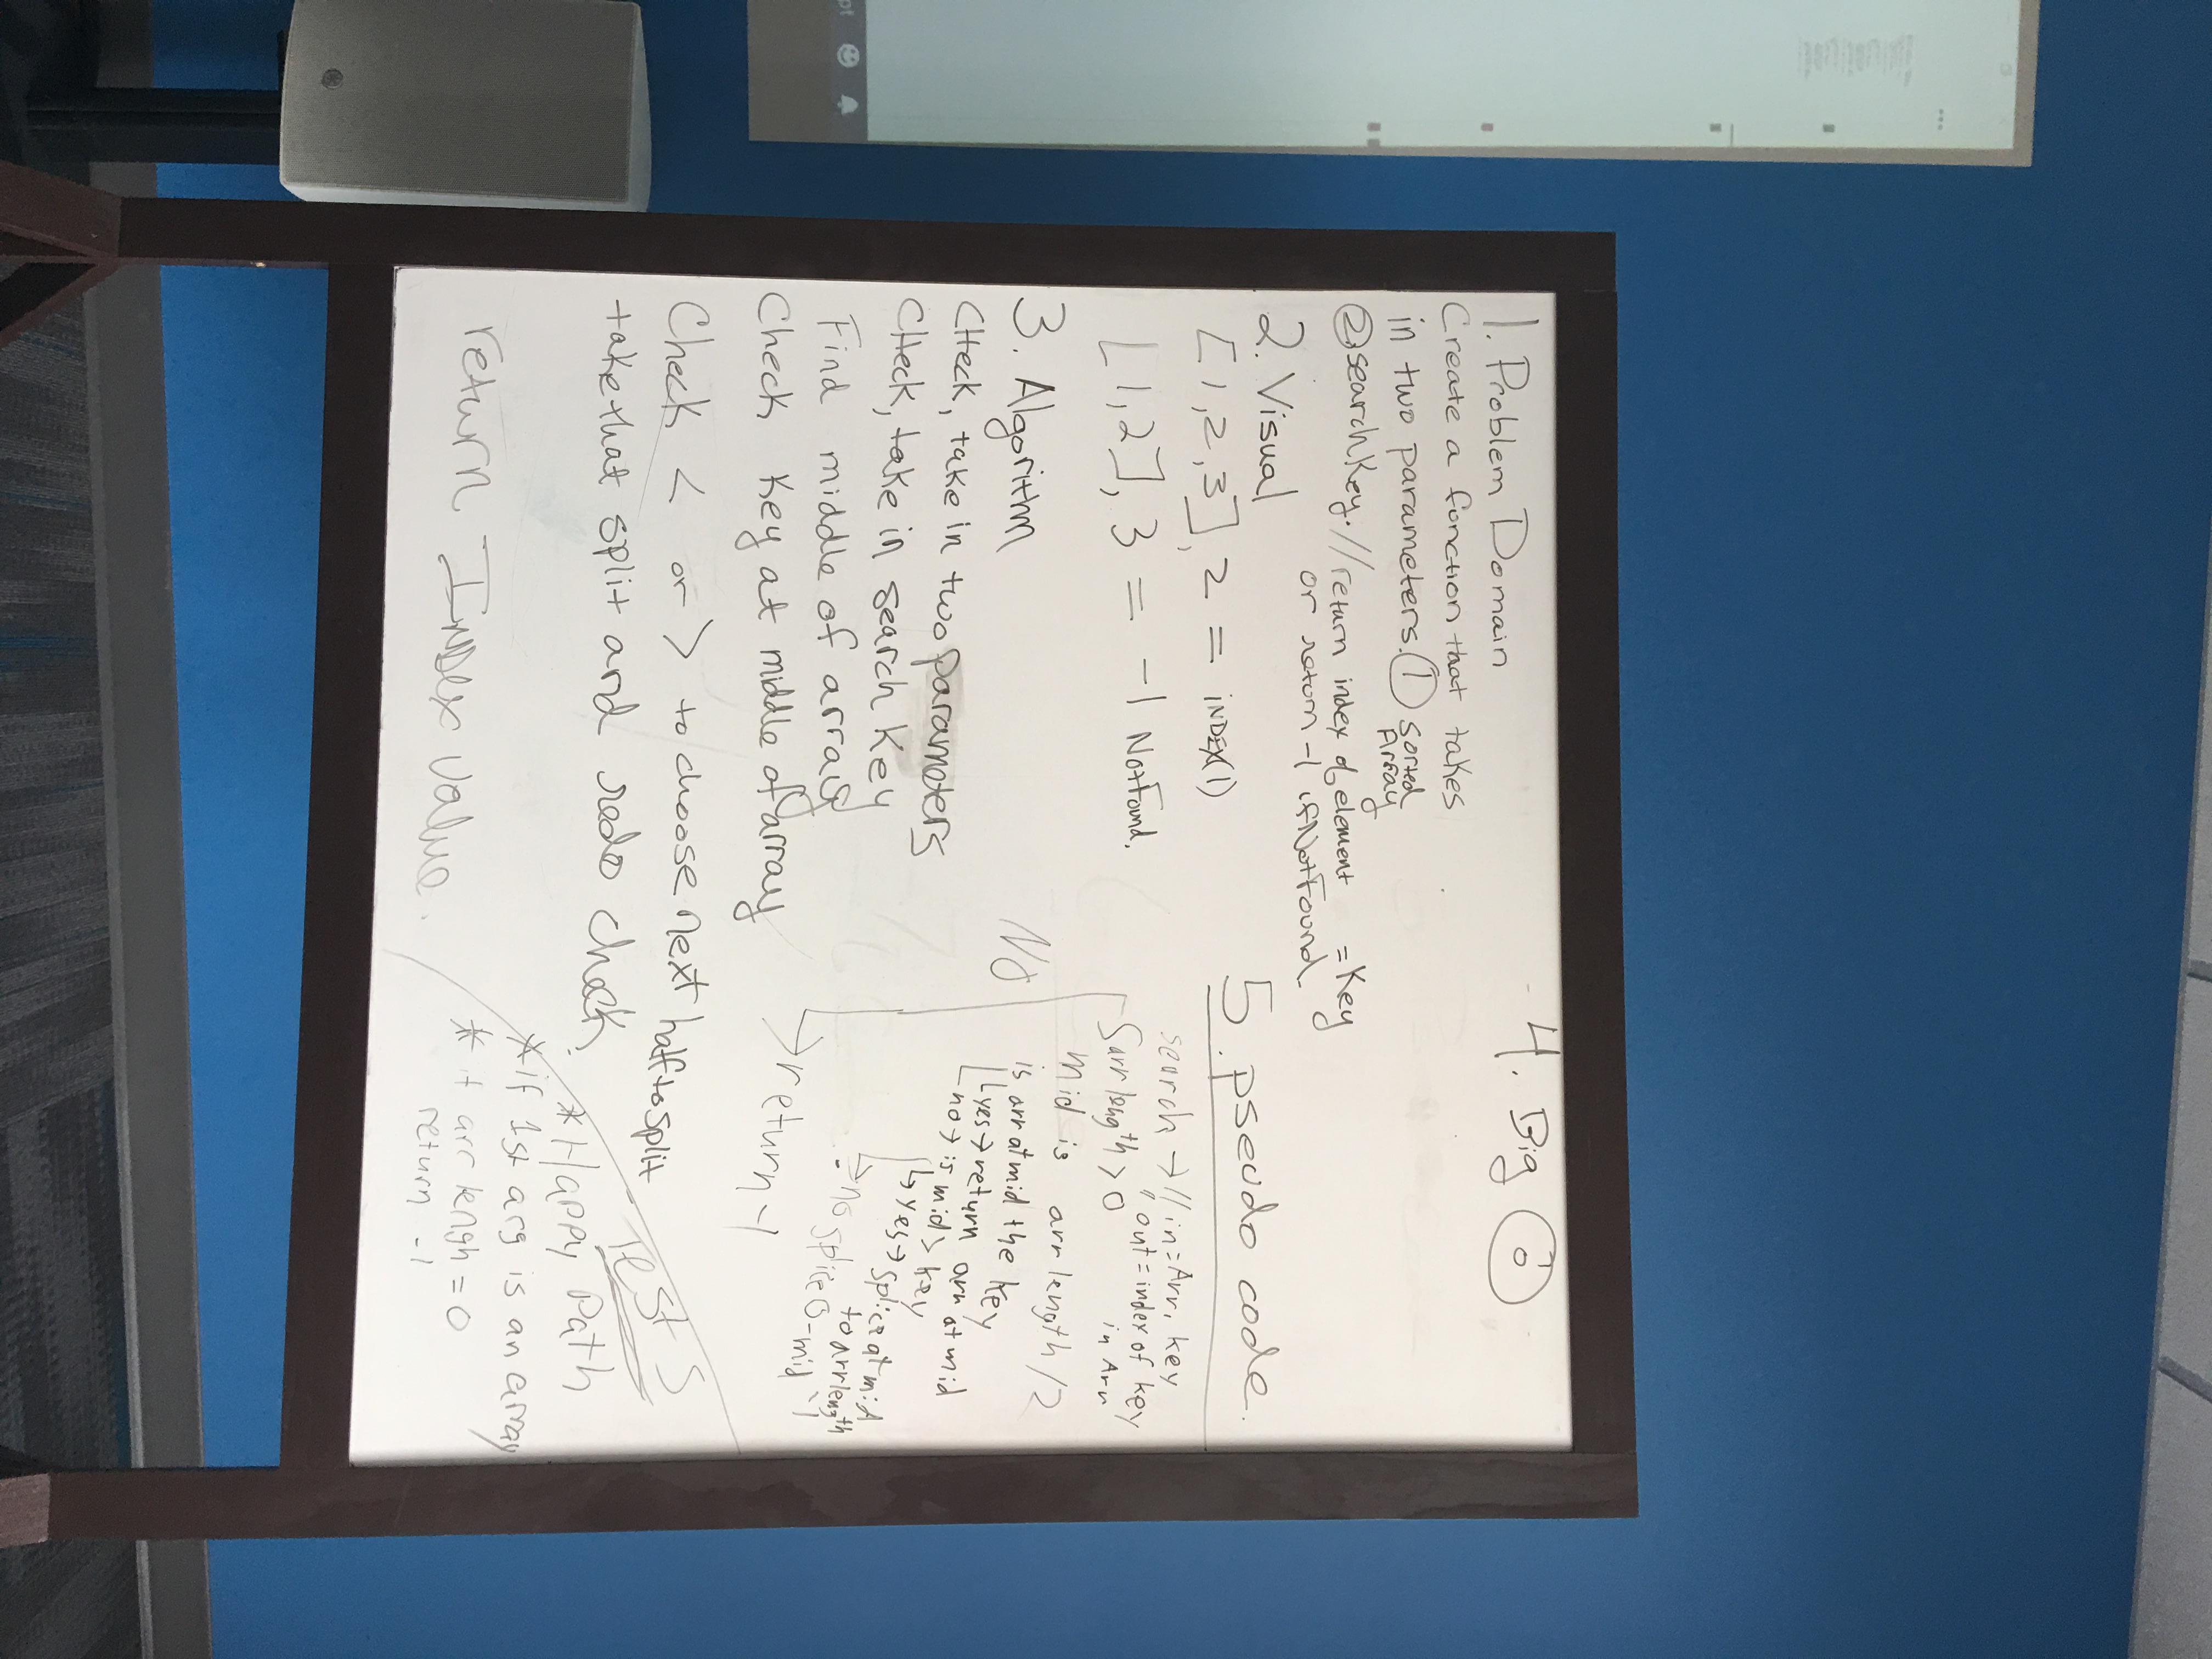 1. Problem Domain
Create a function that takes
in two parameters. ① sorted
Array
② searchKey. // return index of element = Key
or return -1 if Not Found.
2. Visual
[1,2,3], 2 = INDEX(1)
[1,2], 3 = -1 Not Found.
3. Algorithm
CHeck, take in two parameters
CHeck, take in search key
Find middle of array
Check key at middle of array
Check < or > to choose next half to split
take that split and redo check.
return Index Value.
4. Big O
5. pseudo code.
search → // in = Arr, key
" out = index of key
in Arr
arr length > 0
mid is arr length / 2
is arr at mid the key
yes → return arr at mid
no → is mid > key
yes → splice at mid
to arr length
no splice 0 - mid -1
No
return -1
Tests
* Happy Path
* if 1st arg is an array
* if arr lengh = 0
return -1